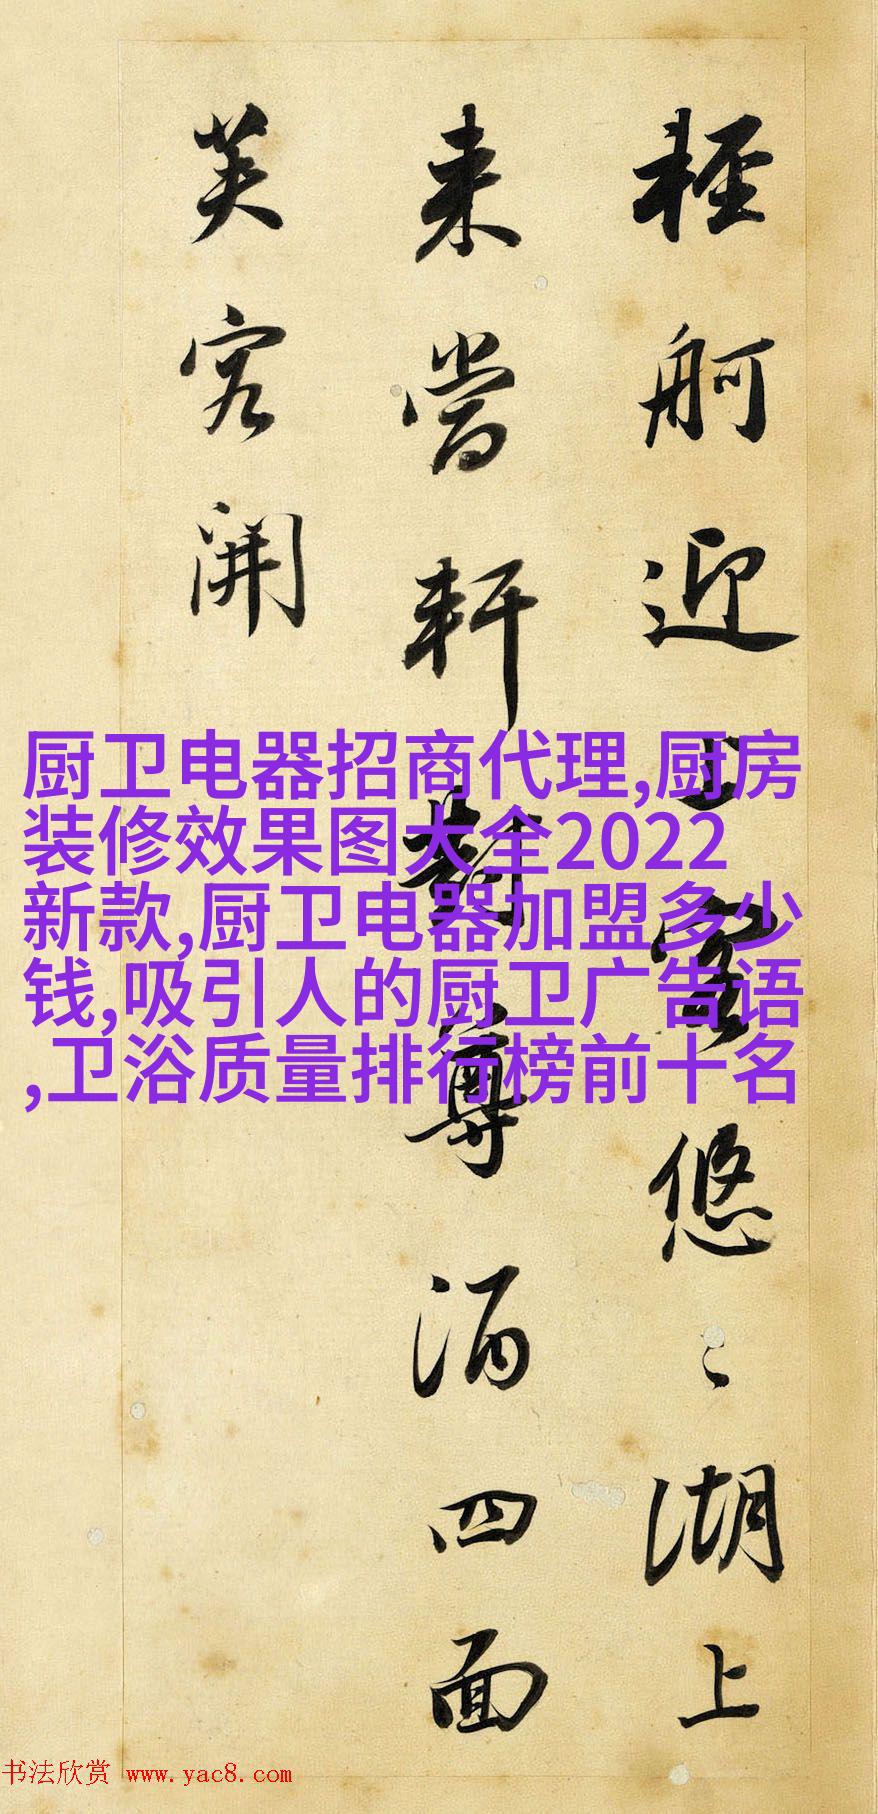 輕舸迎上客悠〻湖上
来當軒對尊酒四面
芙容開
厨卫电器招商代理,厨房
装修效果图大全2022
新款,厨卫电器加盟多少
钱,吸引人的厨卫广告语
,卫浴质量排行榜前十名
书法欣赏 www.yac8.com